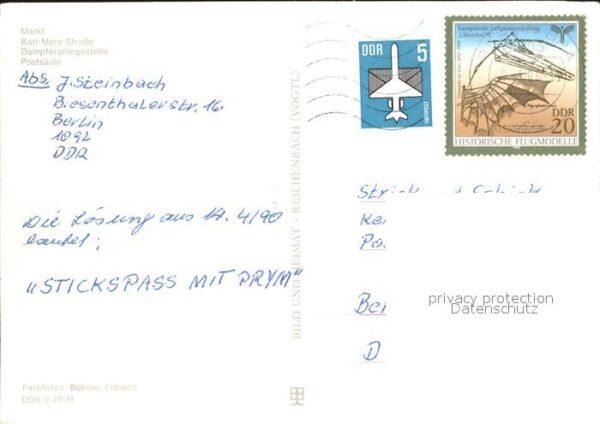 Markt
Karl-Marx-Straße
Dampferanlegestelle
Postsäule
Abs. J. Steinbach
Biesenthalerstr. 16
Berlin
1892
DDR
Die Lösung aus Nr. 4/90
lautet:
„STICKSPASS MIT PRYM"
Farbfotos: Böhme, Erlbach
DDR 0,20 M
BILD UND HEIMAT · REICHENBACH (VOGTL)
DDR 5
LUFTPOST
Europäische Luftpostausstellung
„Lilienthal '91"
DDR
20
HISTORISCHE FLUGMODELLE
Strick
Ber
D
privacy protection
Datenschutz